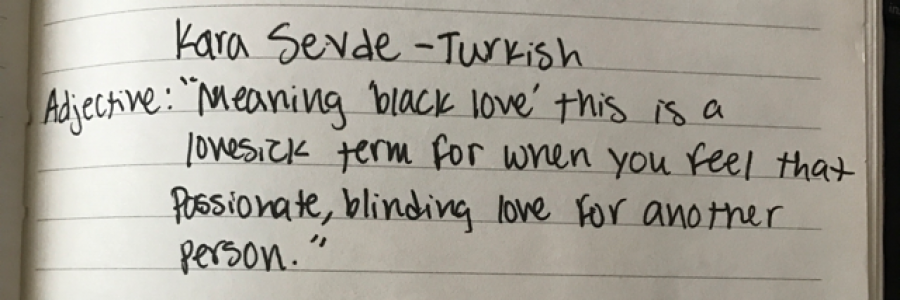 Kara Sevde - Turkish
Adjective: "Meaning 'black love' this is a
lovesick term for when you feel that
passionate, blinding love for another
person."